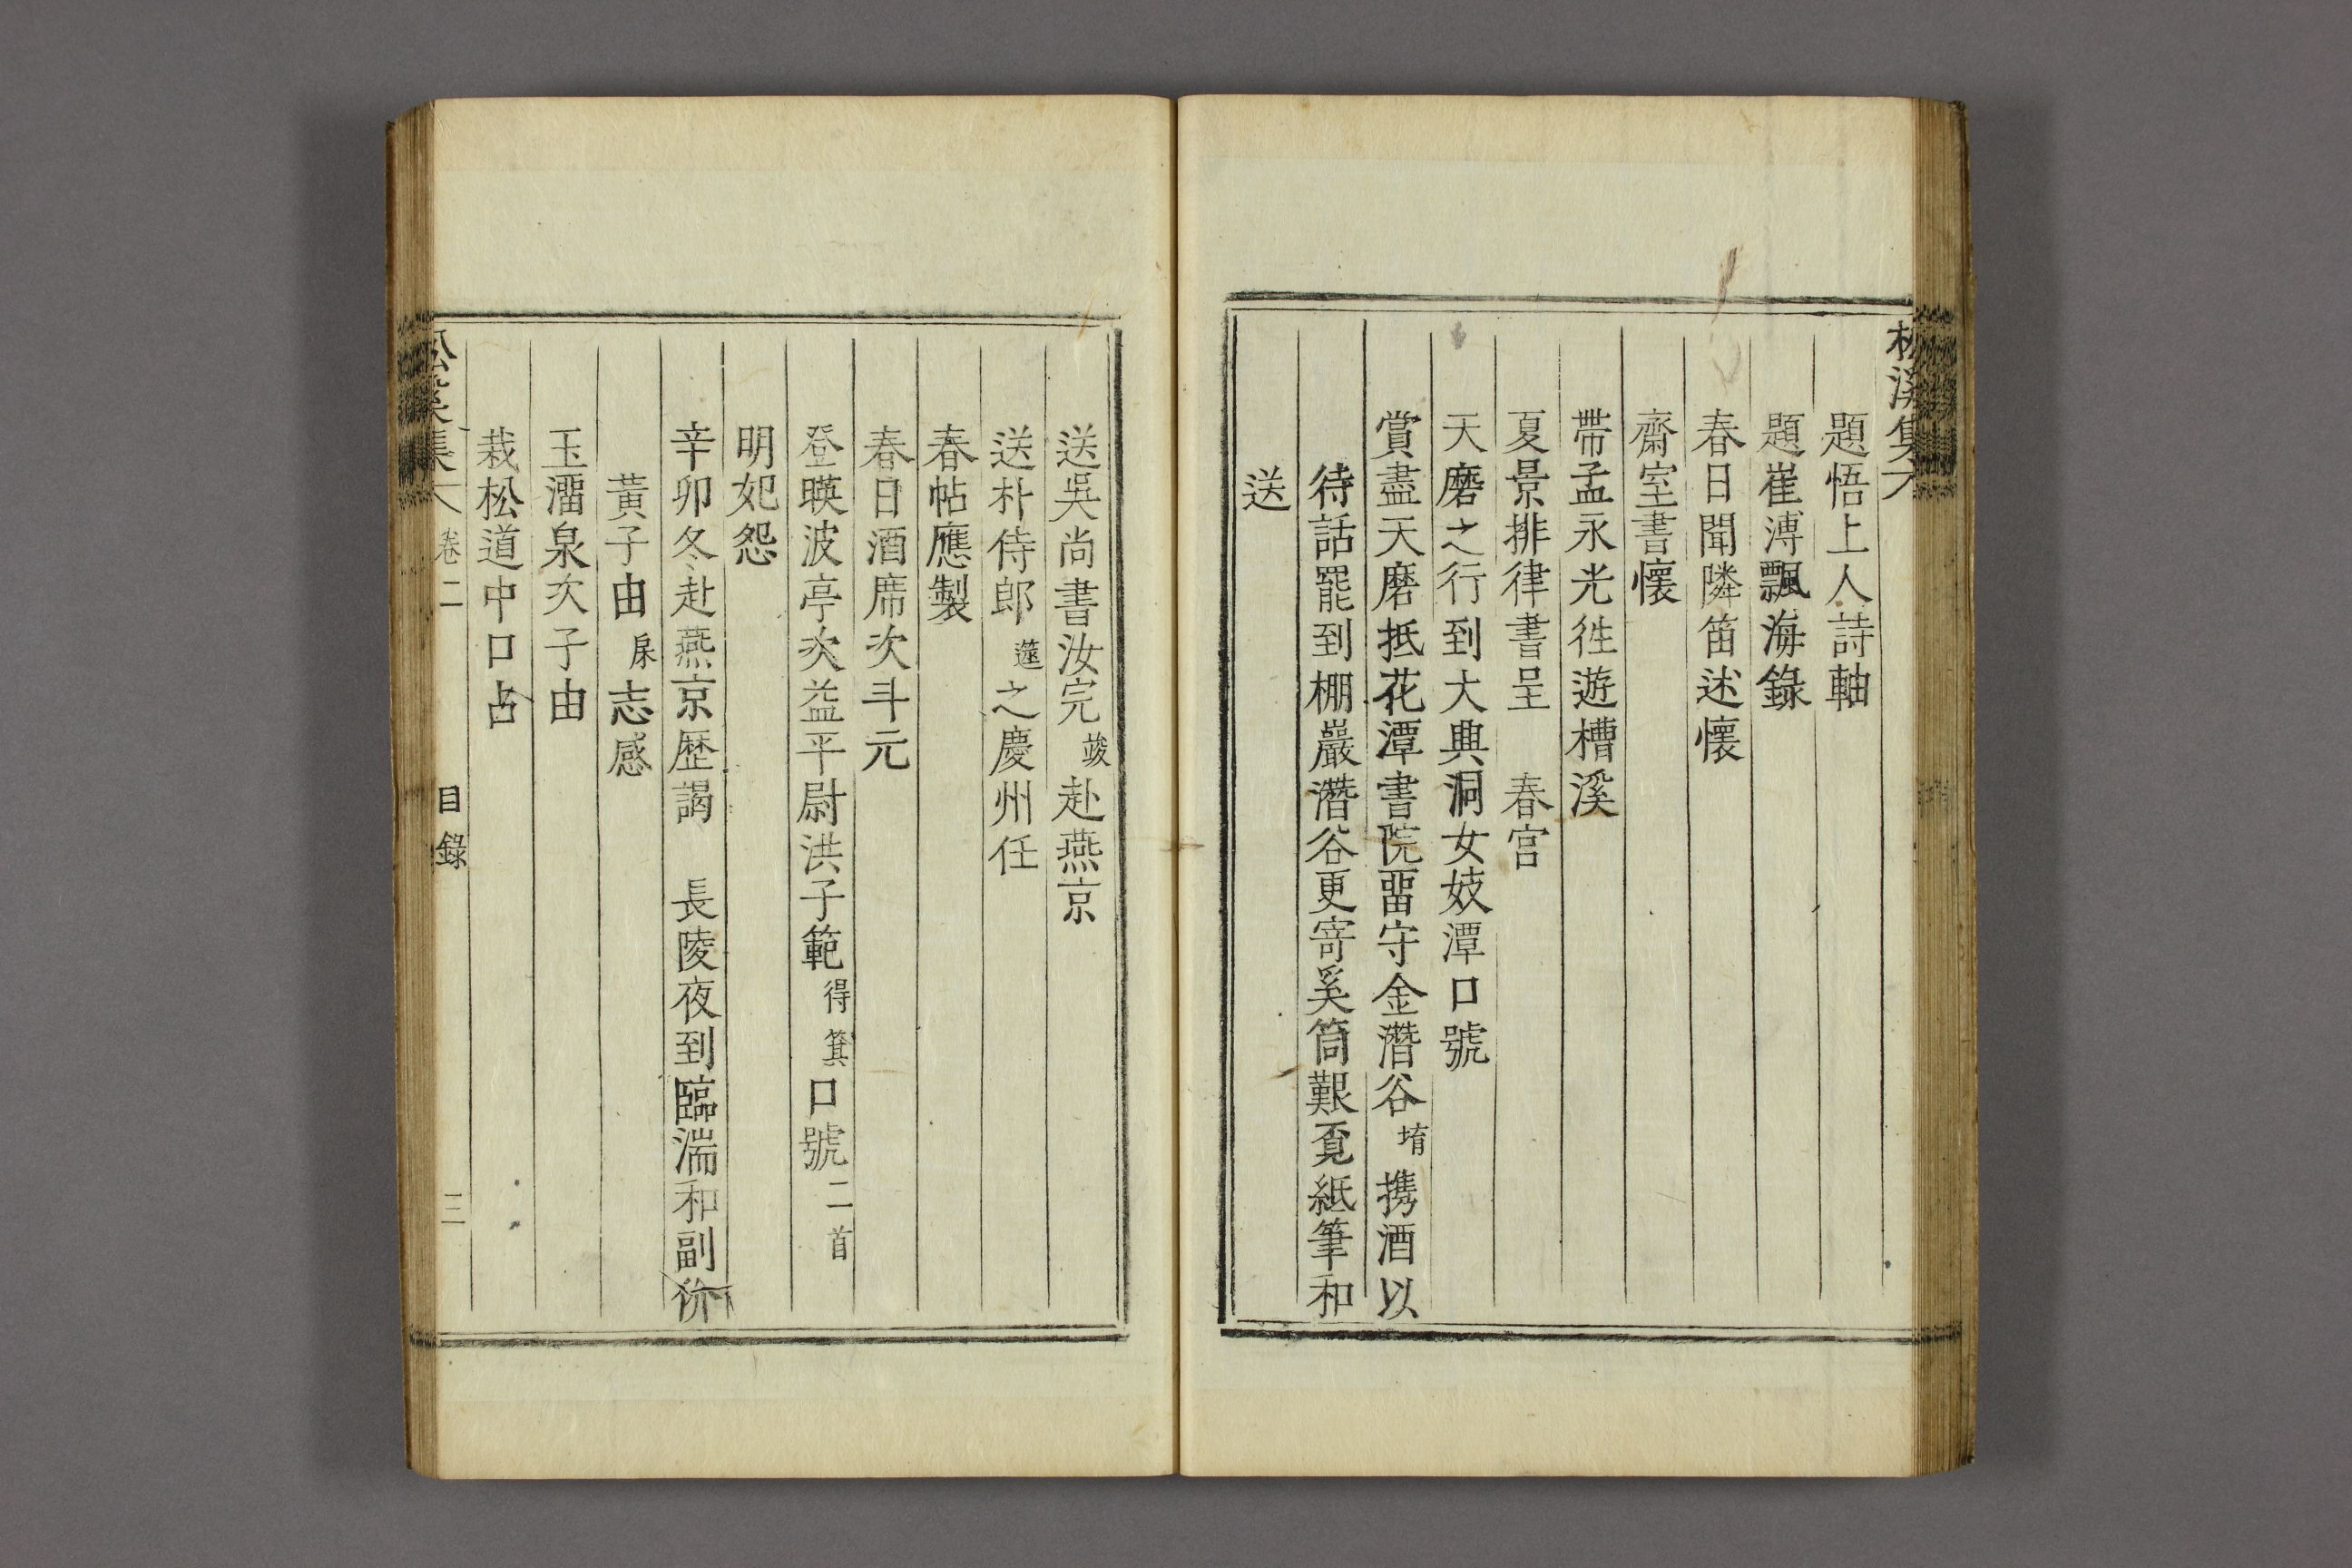 松溪集
題悟上人詩軸
題崔溥飄海錄
春日聞隣笛述懷
齋室書懷
帶孟永光徃遊槽溪
夏景排律書呈 春宮
天磨之行到大興洞女妓潭口號
賞盡天磨抵花潭書院畱守金潛谷堉携酒以
待話罷到棚巖潛谷更寄奚筒艱覔紙筆和
送
送吳尚書汝完竣赴燕京
送朴侍郎𥳑之慶州任
春帖應製
春日酒席次斗元
登暎波亭次益平尉洪子範得箕口號二首
明妃怨
辛卯冬赴燕京歴謁 長陵夜到臨湍和副价
黃子由㦿志感
玉溜泉次子由
栽松道中口占
松溪集 卷二 目錄 三